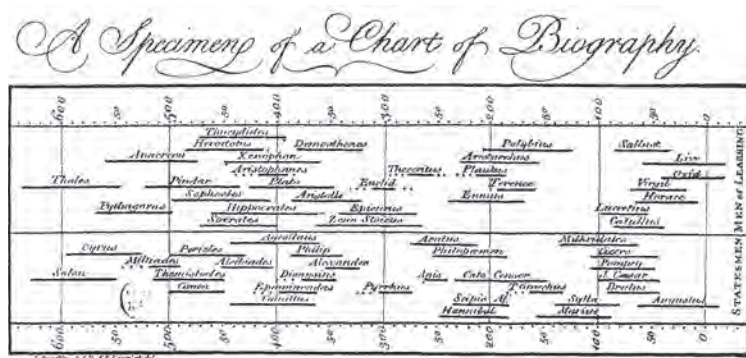 A Specimen of a Chart of Biography.
600 50 500 50 400 50 300 50 200 50 100 50 0
Thucydides
Herodotus Demosthenes Polybius Sallust
Anacreon Xenophon Aristarchus Livy
Aristophanes Theocritus Plautus Ovid
Thales Pindar Plato Euclid Terence Virgil
Sophocles Aristotle Ennius Horace
Pythagoras Hippocrates Epicurus Lucretius
Socrates Zeno Stoicus Catullus
MEN of LEARNING.
Agesilaus Aratus Mithridates
Cyrus Pericles Philip Philopoemen Cicero
Miltiades Alcibiades Alexander Pompey
Solon Themistocles Dionysius Apis Cato Censor J. Caesar
Cimon Epaminondas Pyrrhus Brutus
Camillus Scipio Af. Sylla Augustus
Hannibal Marius
STATESMEN
600 50 500 50 400 50 300 50 200 50 100 50 0